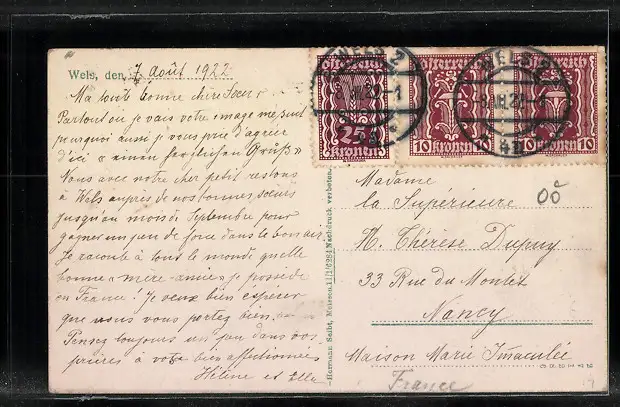 Wels, den 7 Août 1922
Ma toute bonne chère Sœur
Partout où je vais votre image me suit
pourquoi aussi je vous prie d'agréer
d'ici « einen herzlichen Gruß »
Nous avec notre cher petit restons
à Wels auprès de nos bonnes sœurs
jusqu'au mois de Septembre pour
gagner un peu de force dans le bon air.
Je raconte à tout le monde quelle
bonne « mère-amie » je possède
en France! Je veux bien espérer
que vous vous portez bien.
Pensez toujours un peu dans vos
prières à votre bien affectionnée
Hélène et
Herrmann Seibt, Meissen. Nachdruck verboten.
WELS 2
Österreich
25
Kronen
Österreich
10 Kronen
WELS 2
Österreich
Kronen 10
Madame
la Supérieure
M. Thérèse Dupuy
33 Rue du Montet
Nancy
Maison Marie Imaculée
France